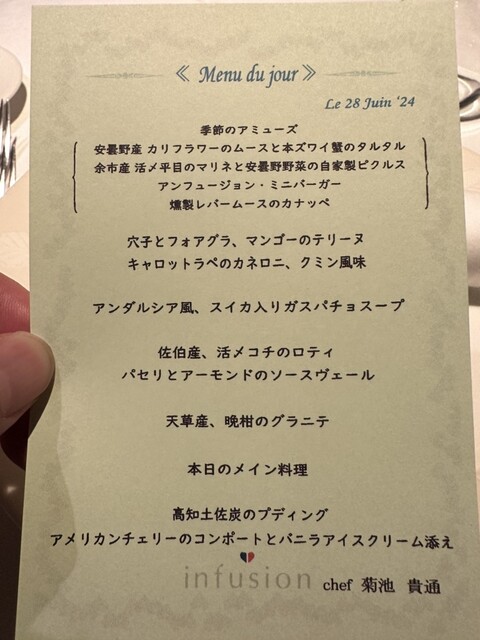 《 Menu du jour 》
Le 28 Juin '24
季節のアミューズ
安曇野産 カリフラワーのムースと本ズワイ蟹のタルタル
余市産 活〆平目のマリネと安曇野野菜の自家製ピクルス
アンフュージョン・ミニバーガー
燻製レバームースのカナッペ
穴子とフォアグラ、マンゴーのテリーヌ
キャロットラペのカネロニ、クミン風味
アンダルシア風、スイカ入りガスパチョスープ
佐伯産、活〆コチのロティ
パセリとアーモンドのソースヴェール
天草産、晩柑のグラニテ
本日のメイン料理
高知土佐炭のプディング
アメリカンチェリーのコンポートとバニラアイスクリーム添え
infusion chef 菊池 貴通